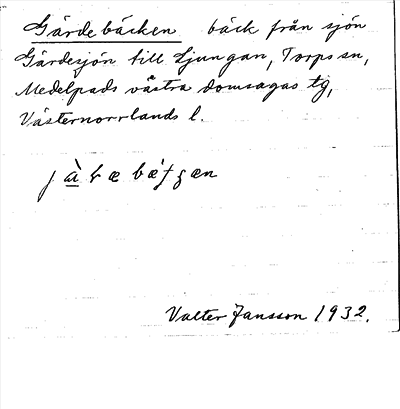 Gärdebäcken bäck från sjön
Gärdesjön till Ljungan, Torps sn,
Medelpads västra domsagas tg,
Västernorrlands l.
Valter Jansson 1932.